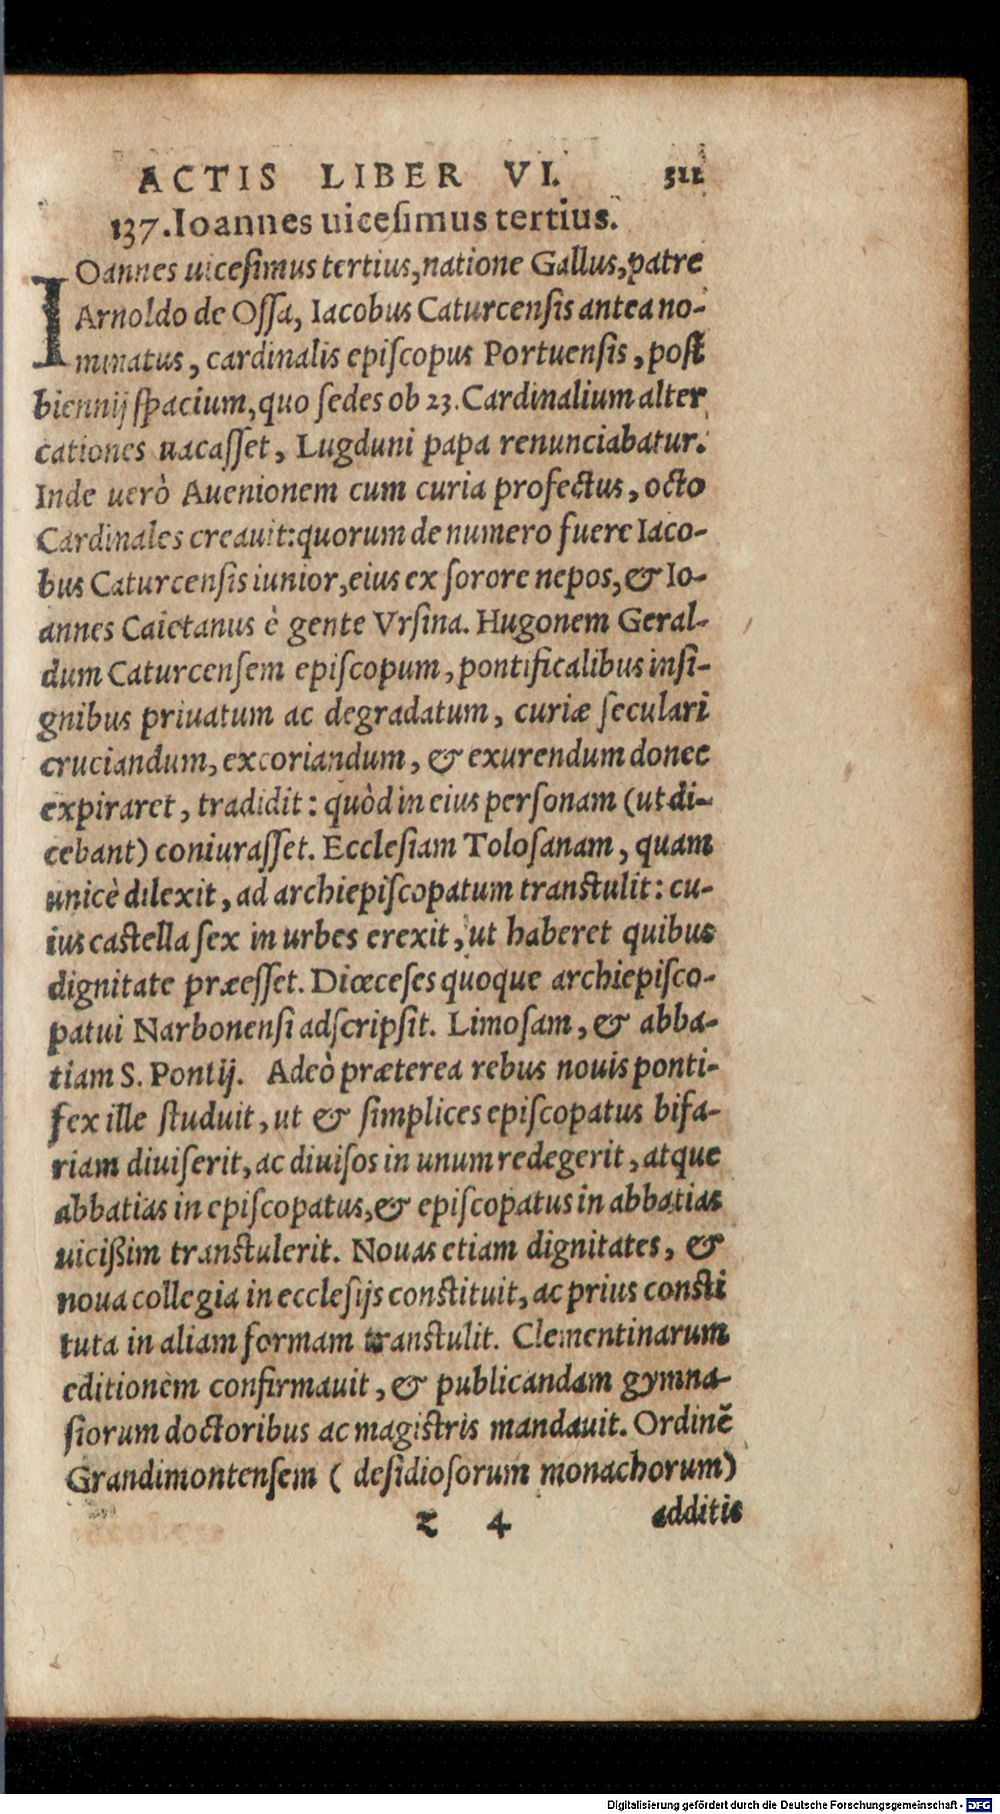 ACTIS LIBER VI. 311
137. Ioannes uicesimus tertius.
IOannes uicesimus tertius, natione Gallus, patre
Arnoldo de Ossa, Iacobus Caturcensis antea no-
minatus, cardinalis episcopus Portuensis, post
biennij spacium, quo sedes ob 23. Cardinalium alter
cationes uacasset, Lugduni papa renunciabatur.
Inde uerò Auenionem cum curia profectus, octo
Cardinales creauit: quorum de numero fuere Iaco-
bus Caturcensis iunior, eius ex sorore nepos, & Io-
annes Caietanus è gente Vrsina. Hugonem Geral-
dum Caturcensem episcopum, pontificalibus insi-
gnibus priuatum ac degradatum, curiæ seculari
cruciandum, excoriandum, & exurendum donec
expiraret, tradidit: quòd in eius personam (ut di-
cebant) coniurasset. Ecclesiam Tolosanam, quam
unicè dilexit, ad archiepiscopatum transtulit: cu-
ius castella sex in urbes erexit, ut haberet quibus
dignitate præesset. Diœceses quoque archiepisco-
patui Narbonensi adscripsit. Limosam, & abba-
tiam S. Pontij. Adeò præterea rebus nouis ponti-
fex ille studuit, ut & simplices episcopatus bifa-
riam diuiserit, ac diuisos in unum redegerit, atque
abbatias in episcopatus, & episcopatus in abbatias
uicißim transtulerit. Nouas etiam dignitates, &
noua collegia in ecclesijs constituit, ac prius consti
tuta in aliam formam transtulit. Clementinarum
editionem confirmauit, & publicandam gymna-
siorum doctoribus ac magistris mandauit. Ordinē
Grandimontensem ( desidiosorum monachorum)
z 4 additis
Digitalisierung gefördert durch die Deutsche Forschungsgemeinschaft - DFG